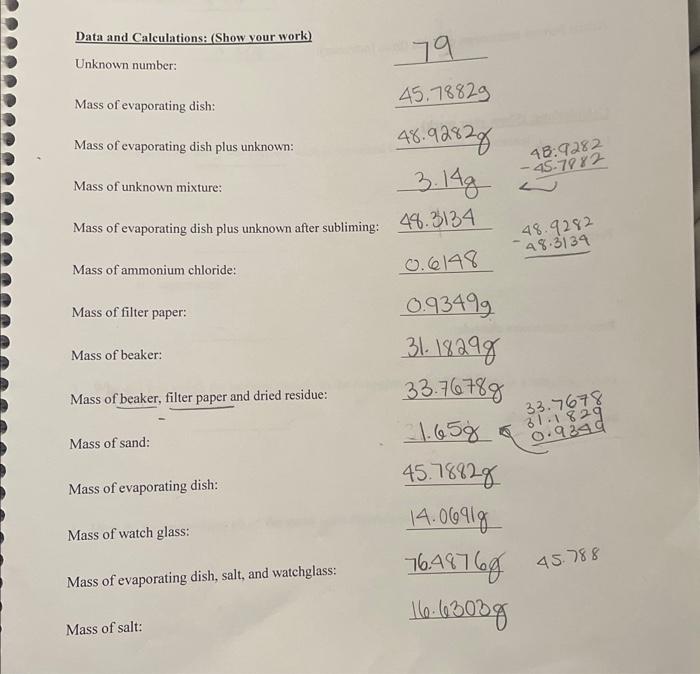 Data and Calculations: (Show your work)
Unknown number: 79
Mass of evaporating dish: 45.7882g
Mass of evaporating dish plus unknown: 48.9282g
48.9282
- 45.7882
Mass of unknown mixture: 3.14g
Mass of evaporating dish plus unknown after subliming: 48.3134
48.9282
- 48.3134
Mass of ammonium chloride: 0.6148
Mass of filter paper: 0.9349g
Mass of beaker: 31.1829g
Mass of beaker, filter paper and dried residue: 33.7678g
33.7678
31.1829
0.9349
Mass of sand: 1.65g
Mass of evaporating dish: 45.7882g
Mass of watch glass: 14.0691g
Mass of evaporating dish, salt, and watchglass: 76.4876g 45.788
Mass of salt: 16.6303g